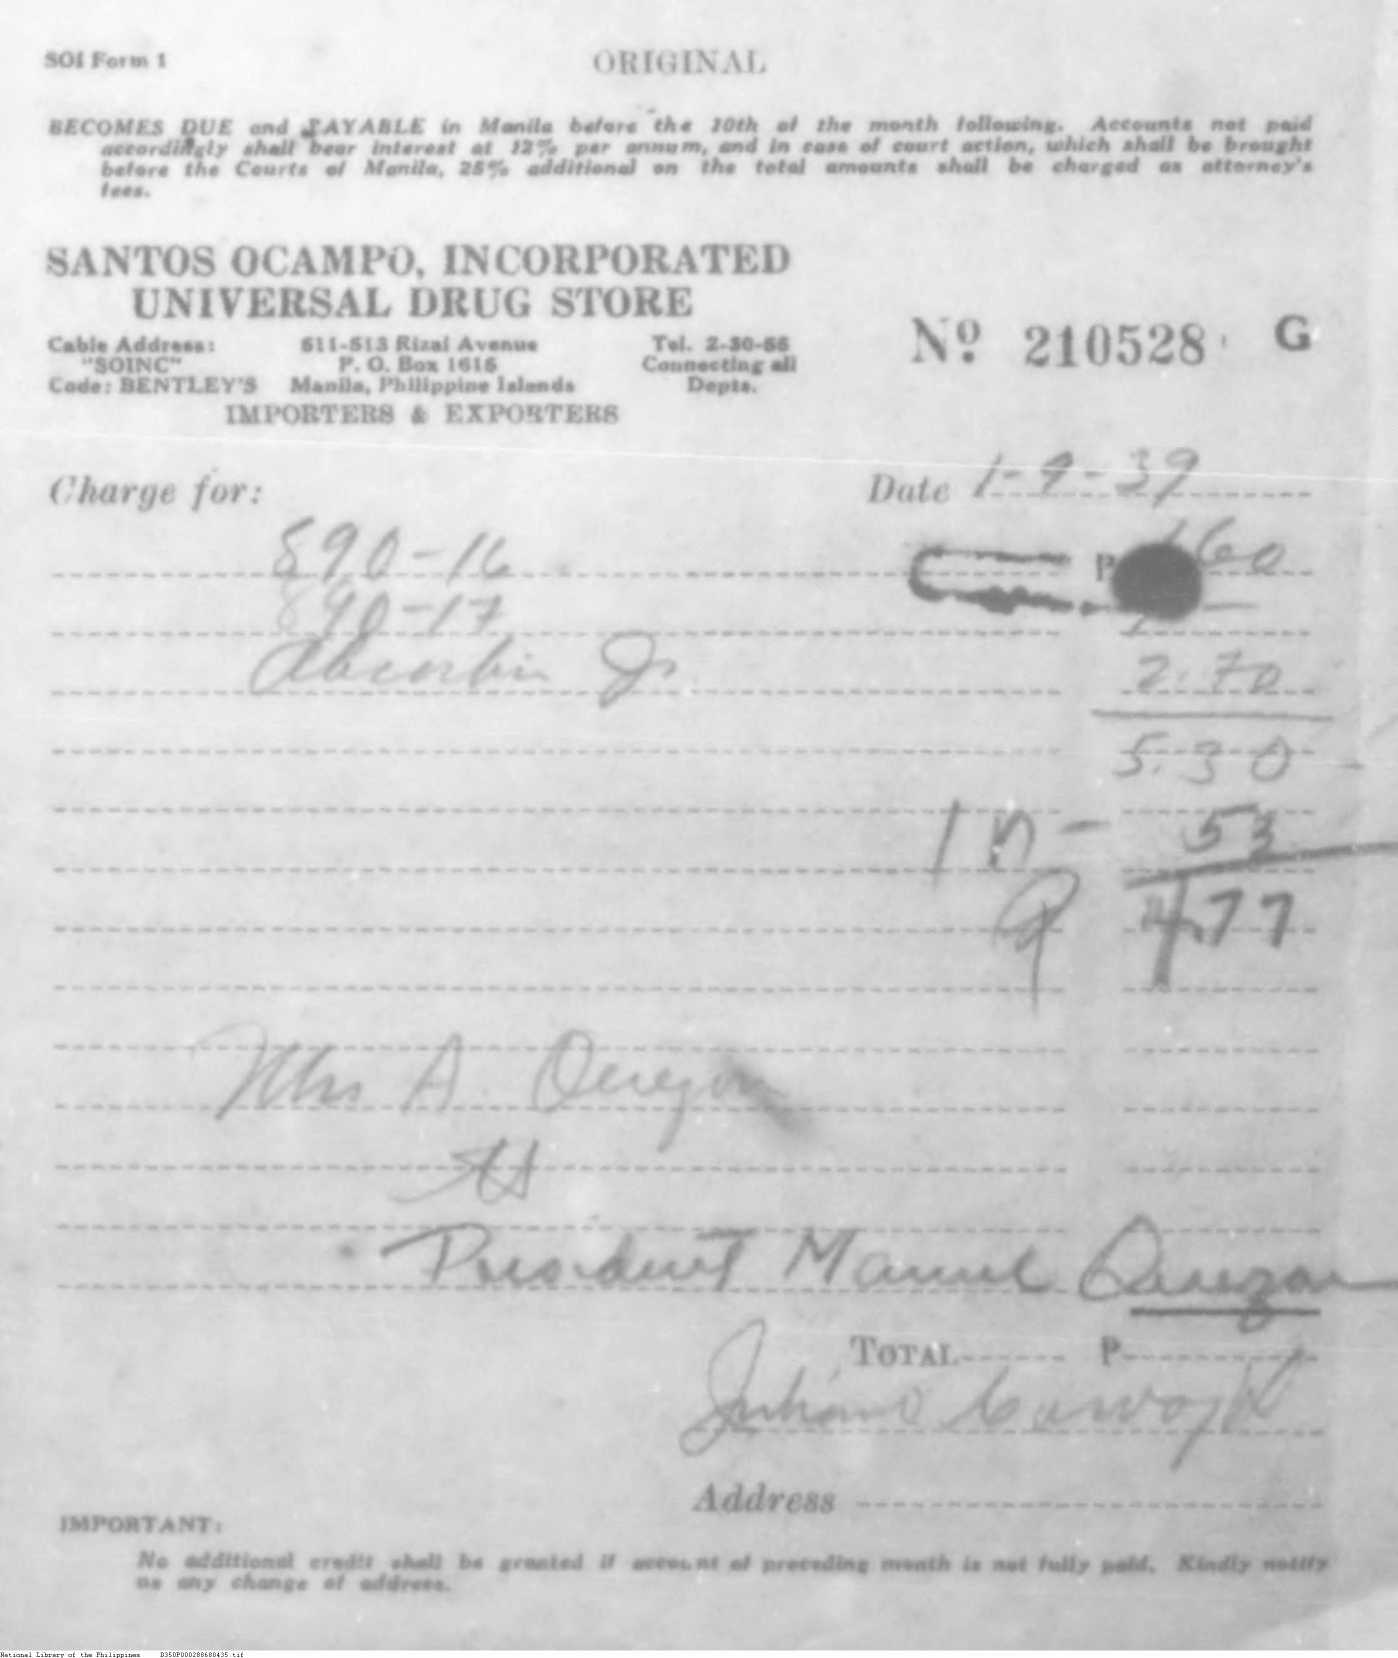 SOI Form 1
ORIGINAL
BECOMES DUE and PAYABLE in Manila before the 10th of the month following. Accounts not paid
accordingly shall bear interest at 12% per annum, and in case of court action, which shall be brought
before the Courts of Manila, 25% additional on the total amounts shall be charged as attorney's
fees.
SANTOS OCAMPO, INCORPORATED
UNIVERSAL DRUG STORE
Cable Address: 611-613 Rizal Avenue Tel. 2-30-55
"SOINC" P. O. Box 1615 Connecting all
Code: BENTLEY'S Manila, Philippine Islands Depts.
IMPORTERS & EXPORTERS
Nº 210528 G
Charge for: Date 1-9-39
890-16 P 1.60
890-17
Absorbin Jr. 2.70
5.30
53
4.77
Mrs A. Quezon
President Manuel Quezon
TOTAL P
Address
IMPORTANT:
No additional credit shall be granted if account of preceding month is not fully paid. Kindly notify
us any change of address.
National Library of the Philippines D350P000288680435.tif